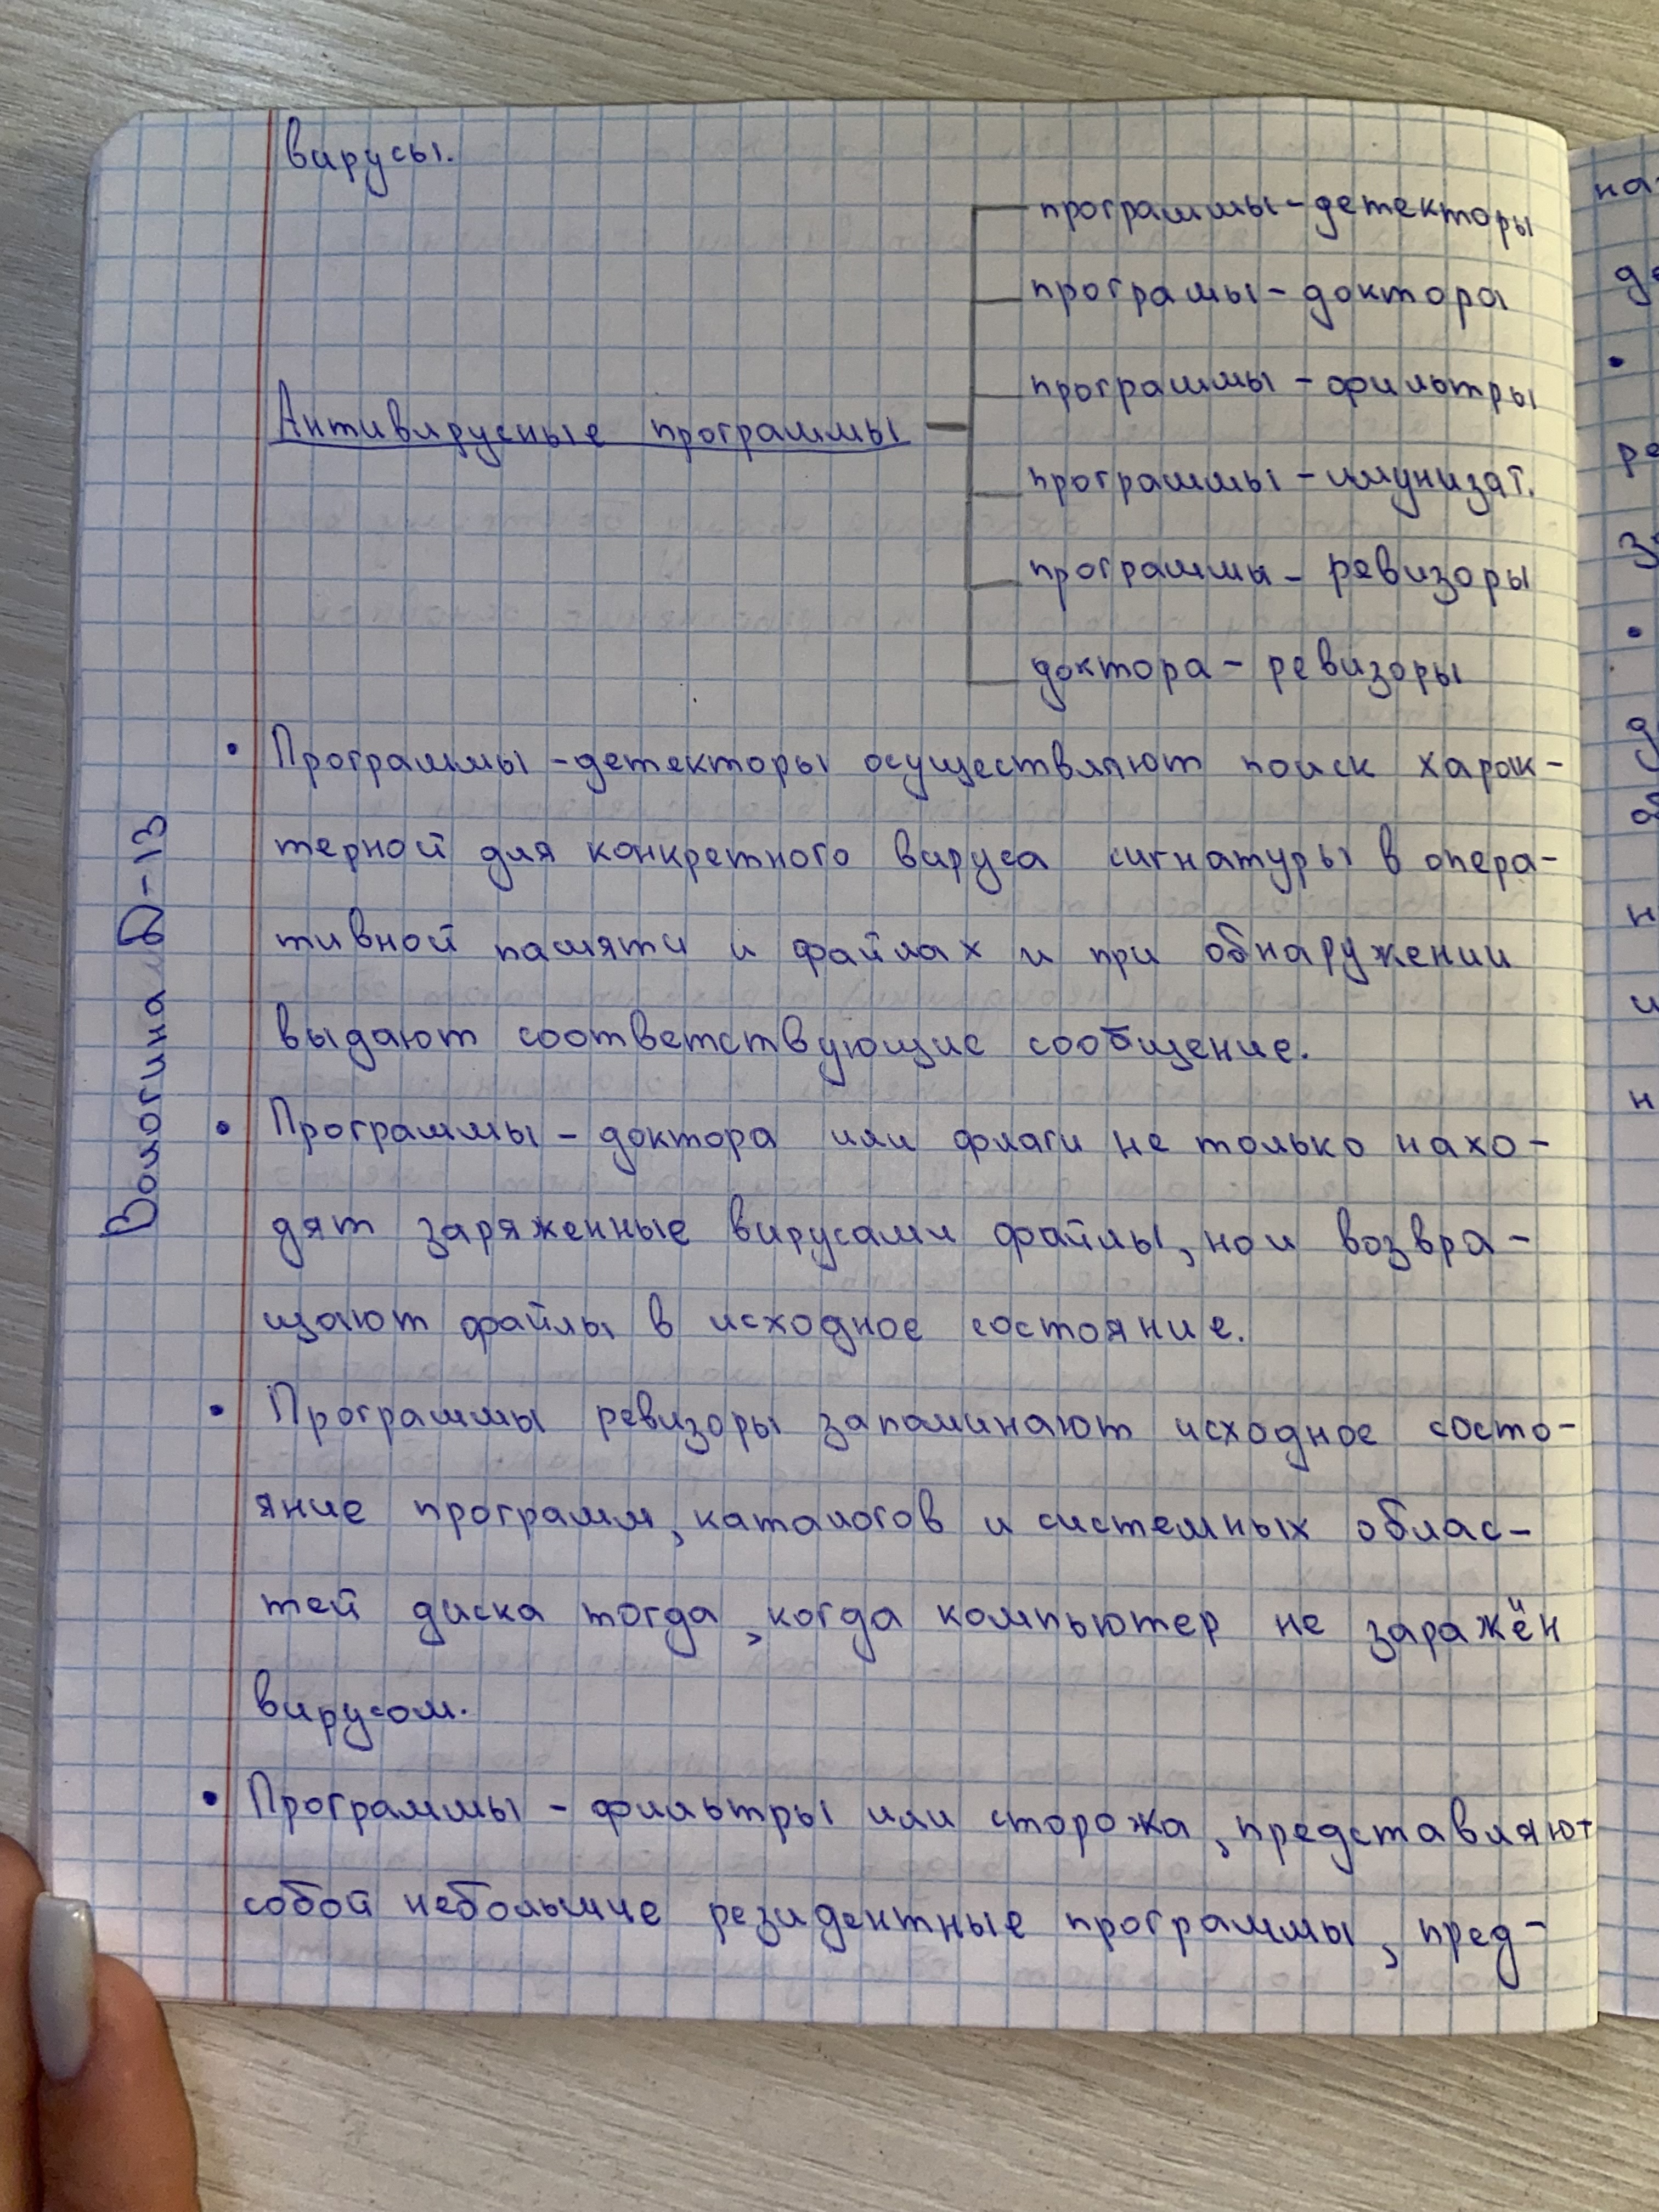 вирусы.
программы-детекторы
програмы-доктора
программы-фильтры
Антивирусные программы
программы-имунизат.
программы-ревизоры
доктора-ревизоры
• Программы-детекторы осуществляют поиск харак-
терной для конкретного вируса сигнатуры в опера-
тивной памяти и файлах и при обнаружении
выдают соответствующие сообщение.
• Программы-доктора или флаги не только нахо-
дят заряженные вирусами файлы, но и возвра-
щают файлы в исходное состояние.
• Программы ревизоры запоминают исходное состо-
яние программ, каталогов и системных облас-
тей диска тогда, когда компьютер не заражён
вирусом.
• Программы-фильтры или сторожа, представляют
собой небольшие резидентные программы, пред-
Вологина
-13